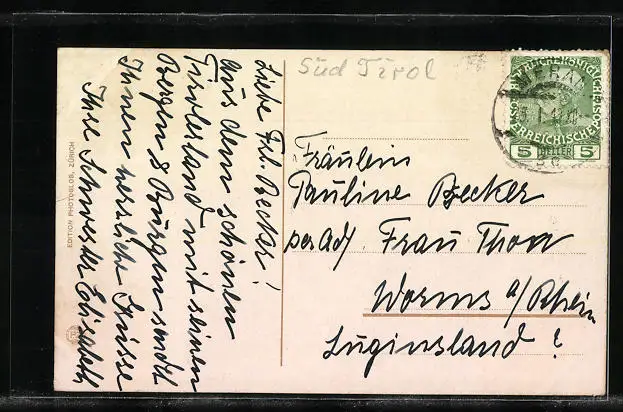 Süd Tirol
Liebe Frl. Becker!
Aus dem schönen
Tirolerland mit seinen
Bergen & Burgen sendet
Ihnen herzliche Grüsse
Ihre Schwester Elisabeth
EDITION PHOTOGLOB, ZÜRICH
MERAN
5 HELLER 5
Fräulein
Pauline Becker
per Adr. Frau Thon
Worms a/Rhein
Luginsland ?